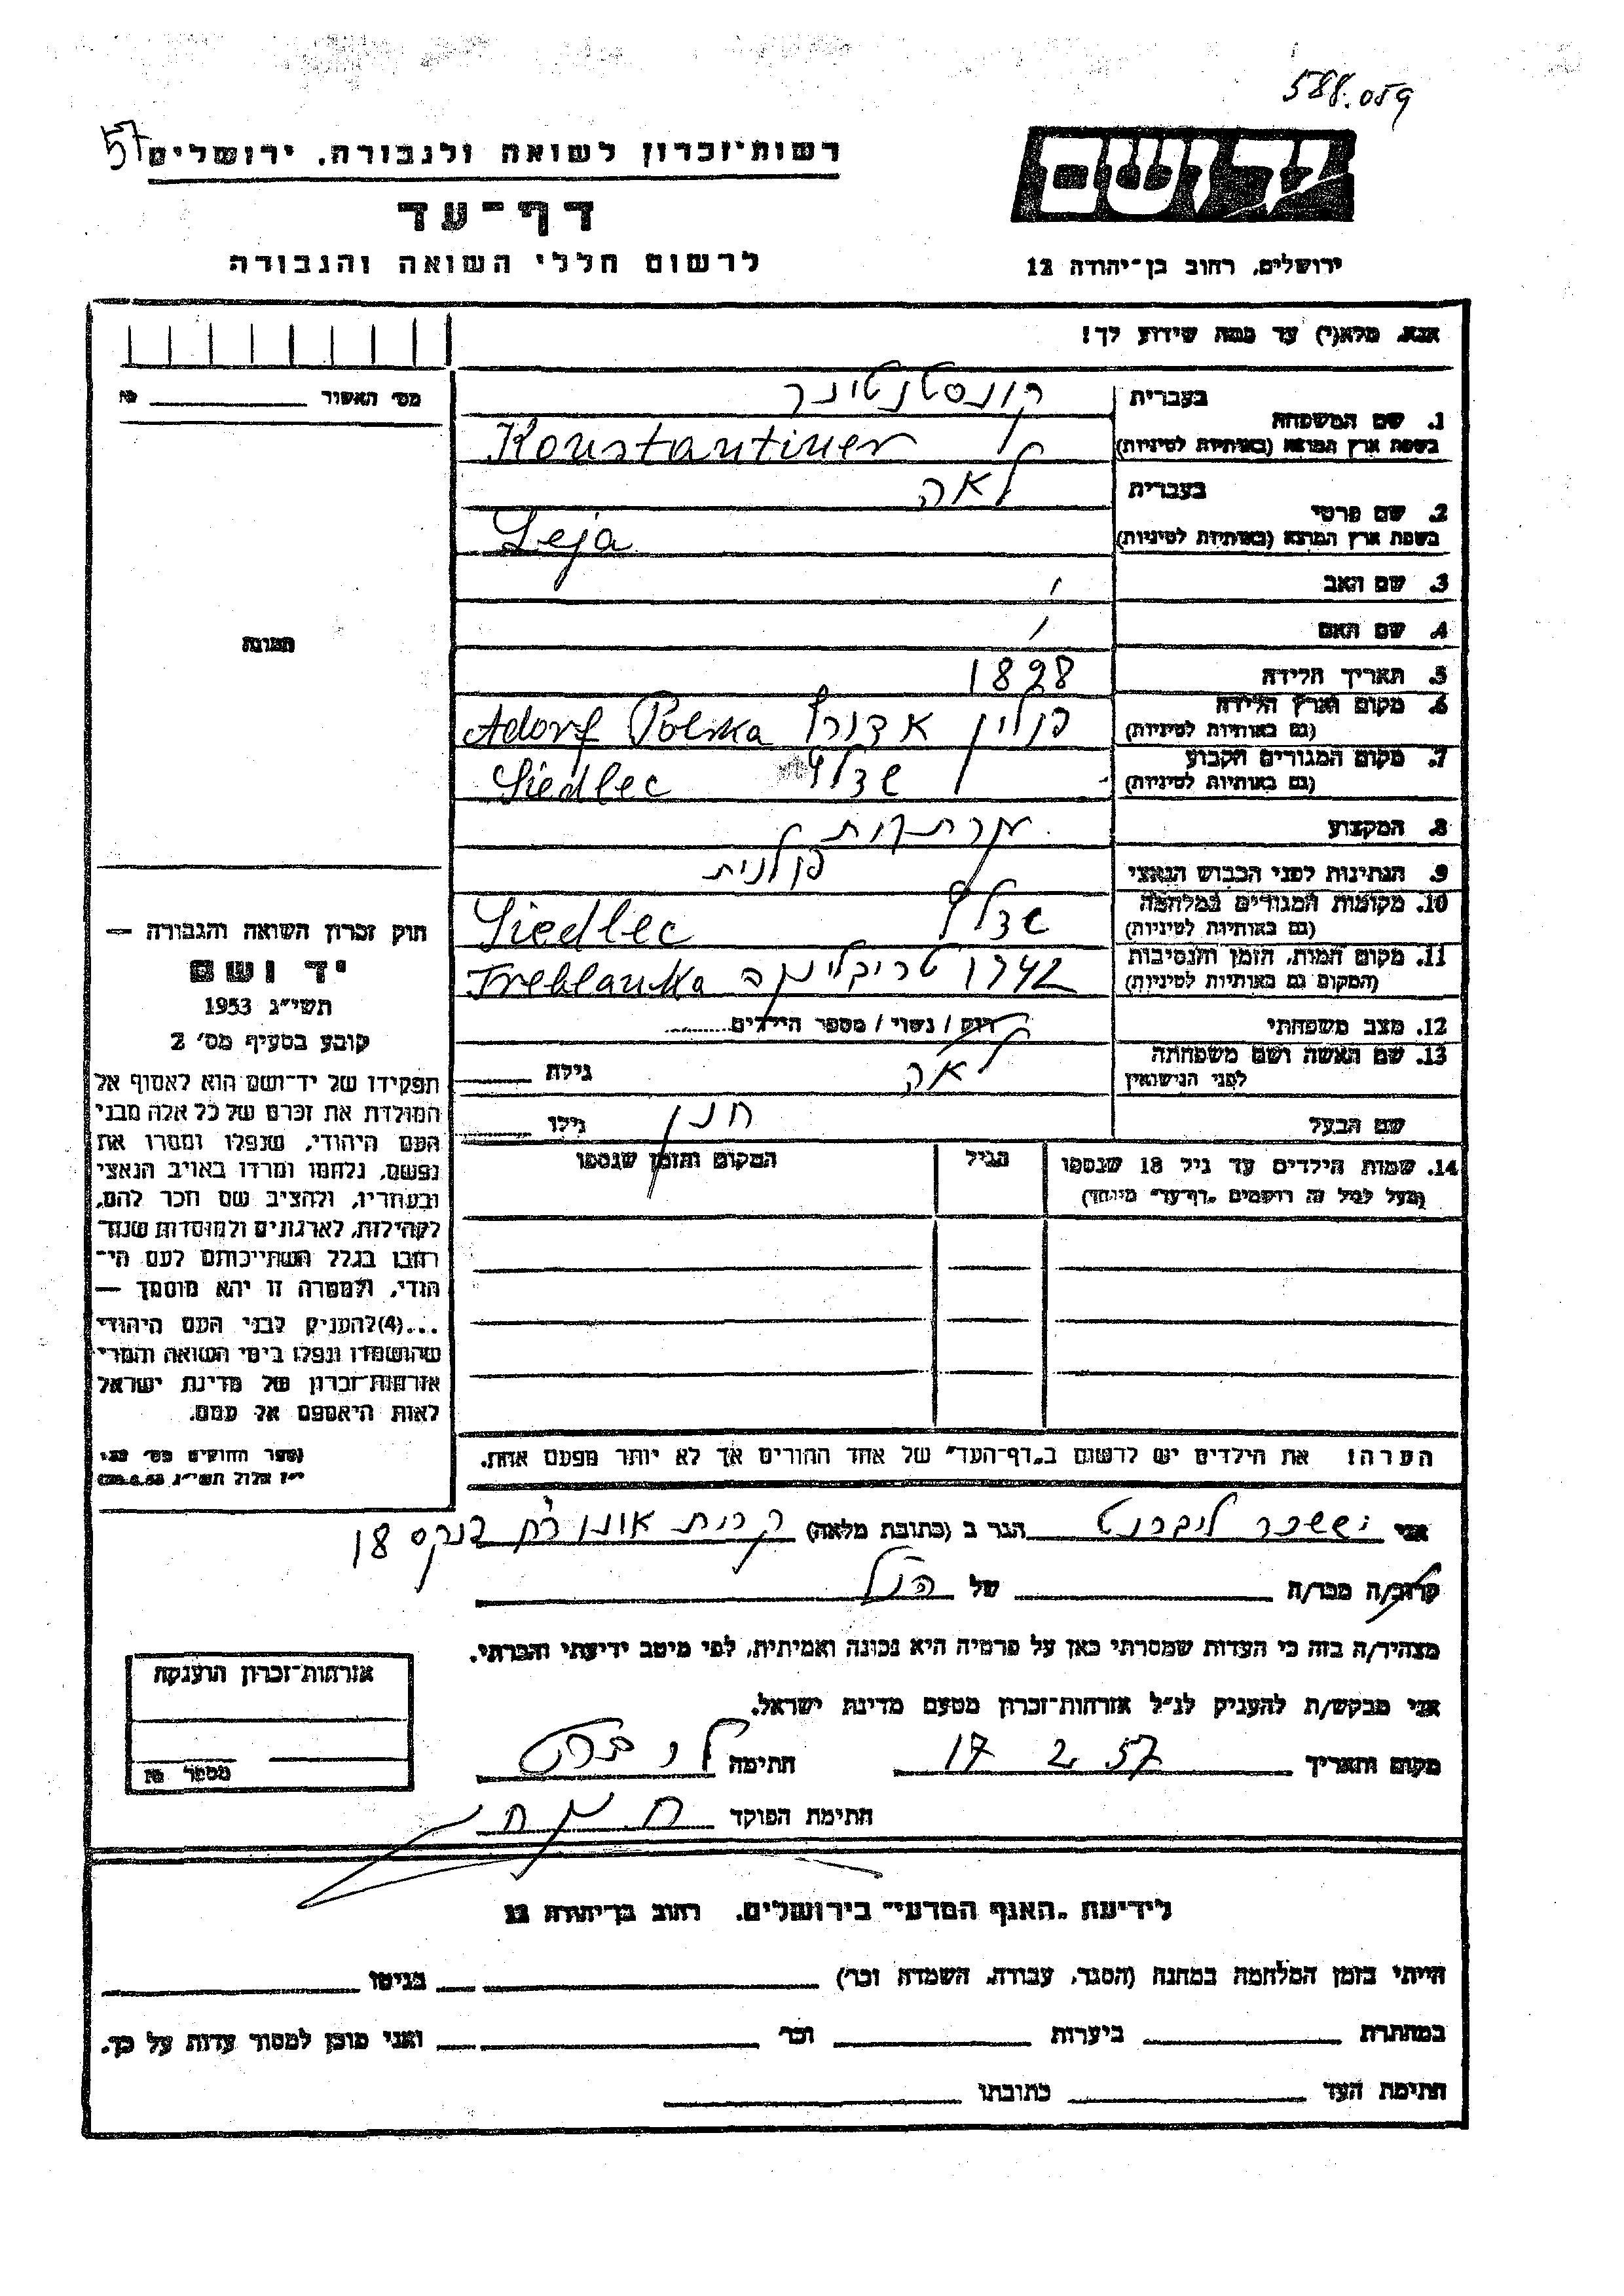 588.059
57
רשות־זכרון לשואה ולגבורה, ירושלים
יד ושם
דף־עד
לרשום חללי השואה והגבורה
ירושלים, רחוב בן־יהודה 12
אנא, מלא(י) עד כמה שידוע לך!
מס' האשור
1. שם המשפחה
בעברית קונסטנטינר
בשפת ארץ המוצא (באותיות לטיניות) Konstantiner
2. שם פרטי
בעברית לאה
בשפת ארץ המוצא (באותיות לטיניות) Leja
3. שם האב
4. שם האם
5. תאריך הלידה 1898
6. מקום וארץ הלידה
(גם באותיות לטיניות) פולין אדורף Adorf Polska
7. מקום המגורים הקבוע
(גם באותיות לטיניות) שדלץ Siedlec
8. המקצוע
9. הנתינות לפני הכבוש הנאצי פולנית
10. מקומות המגורים במלחמה
(גם באותיות לטיניות) שדלץ Siedlec
11. מקום המות, הזמן והנסיבות
(המקום גם באותיות לטיניות) 1942 טריבלינקה Treblanka
12. מצב משפחתי רוק / נשוי / מספר הילדים
13. שם האשה ושם משפחתה
לפני הנישואין לאה גילה
שם הבעל חנן גילו
14. שמות הילדים עד גיל 18 שנספו
(מעל לגיל זה רושמים "דף־עד" מיוחד)
הגיל
המקום והזמן שנספו
הערה! את הילדים יש לרשום ב"דף־העד" של אחד ההורים אך לא יותר מפעם אחת.
תמונה
חוק זכרון השואה והגבורה —
יד ושם
תשי"ג 1953
קובע בסעיף מס' 2
תפקידו של יד־ושם הוא לאסוף אל
המולדת את זכרם של כל אלה מבני
העם היהודי, שנפלו ומסרו את
נפשם, נלחמו ומרדו באויב הנאצי
ובעוזריו, ולהציב שם וזכר להם,
לקהילות, לארגונים ולמוסדות שנח־
רבו בגלל השתייכותם לעם הי־
הודי, ולמטרה זו יהא מוסמך —
...(4)להעניק לבני העם היהודי
שהושמדו ונפלו בימי השואה והמרי
אזרחות־זכרון של מדינת ישראל
לאות היאספם אל עמם.
(ספר החוקים מס' 132,
י"ז אלול תשי"ג, 28.8.53)
אני יששכר ליברנט הגר ב (כתובת מלאה) קרית אונו רח פנקס 18
קרוב/ה מכר/ה של הנ"ל
מצהיר/ה בזה כי העדות שמסרתי כאן על פרטיה היא נכונה ואמיתית, לפי מיטב ידיעתי והכרתי.
אני מבקש/ת להעניק לנ"ל אזרחות־זכרון מטעם מדינת ישראל.
מקום ותאריך 17 2 57 חתימה
חתימת הפוקד
אזרחות־זכרון הוענקה
מספר
לידיעת "האגף המדעי" בירושלים, רחוב בן־יהודה 12
הייתי בזמן המלחמה במחנה (הסגר, עבודה, השמדה וכו') בגיטו
במחתרת ביערות וכו' ואני מוכן למסור עדות על כך.
חתימת העד כתובתו